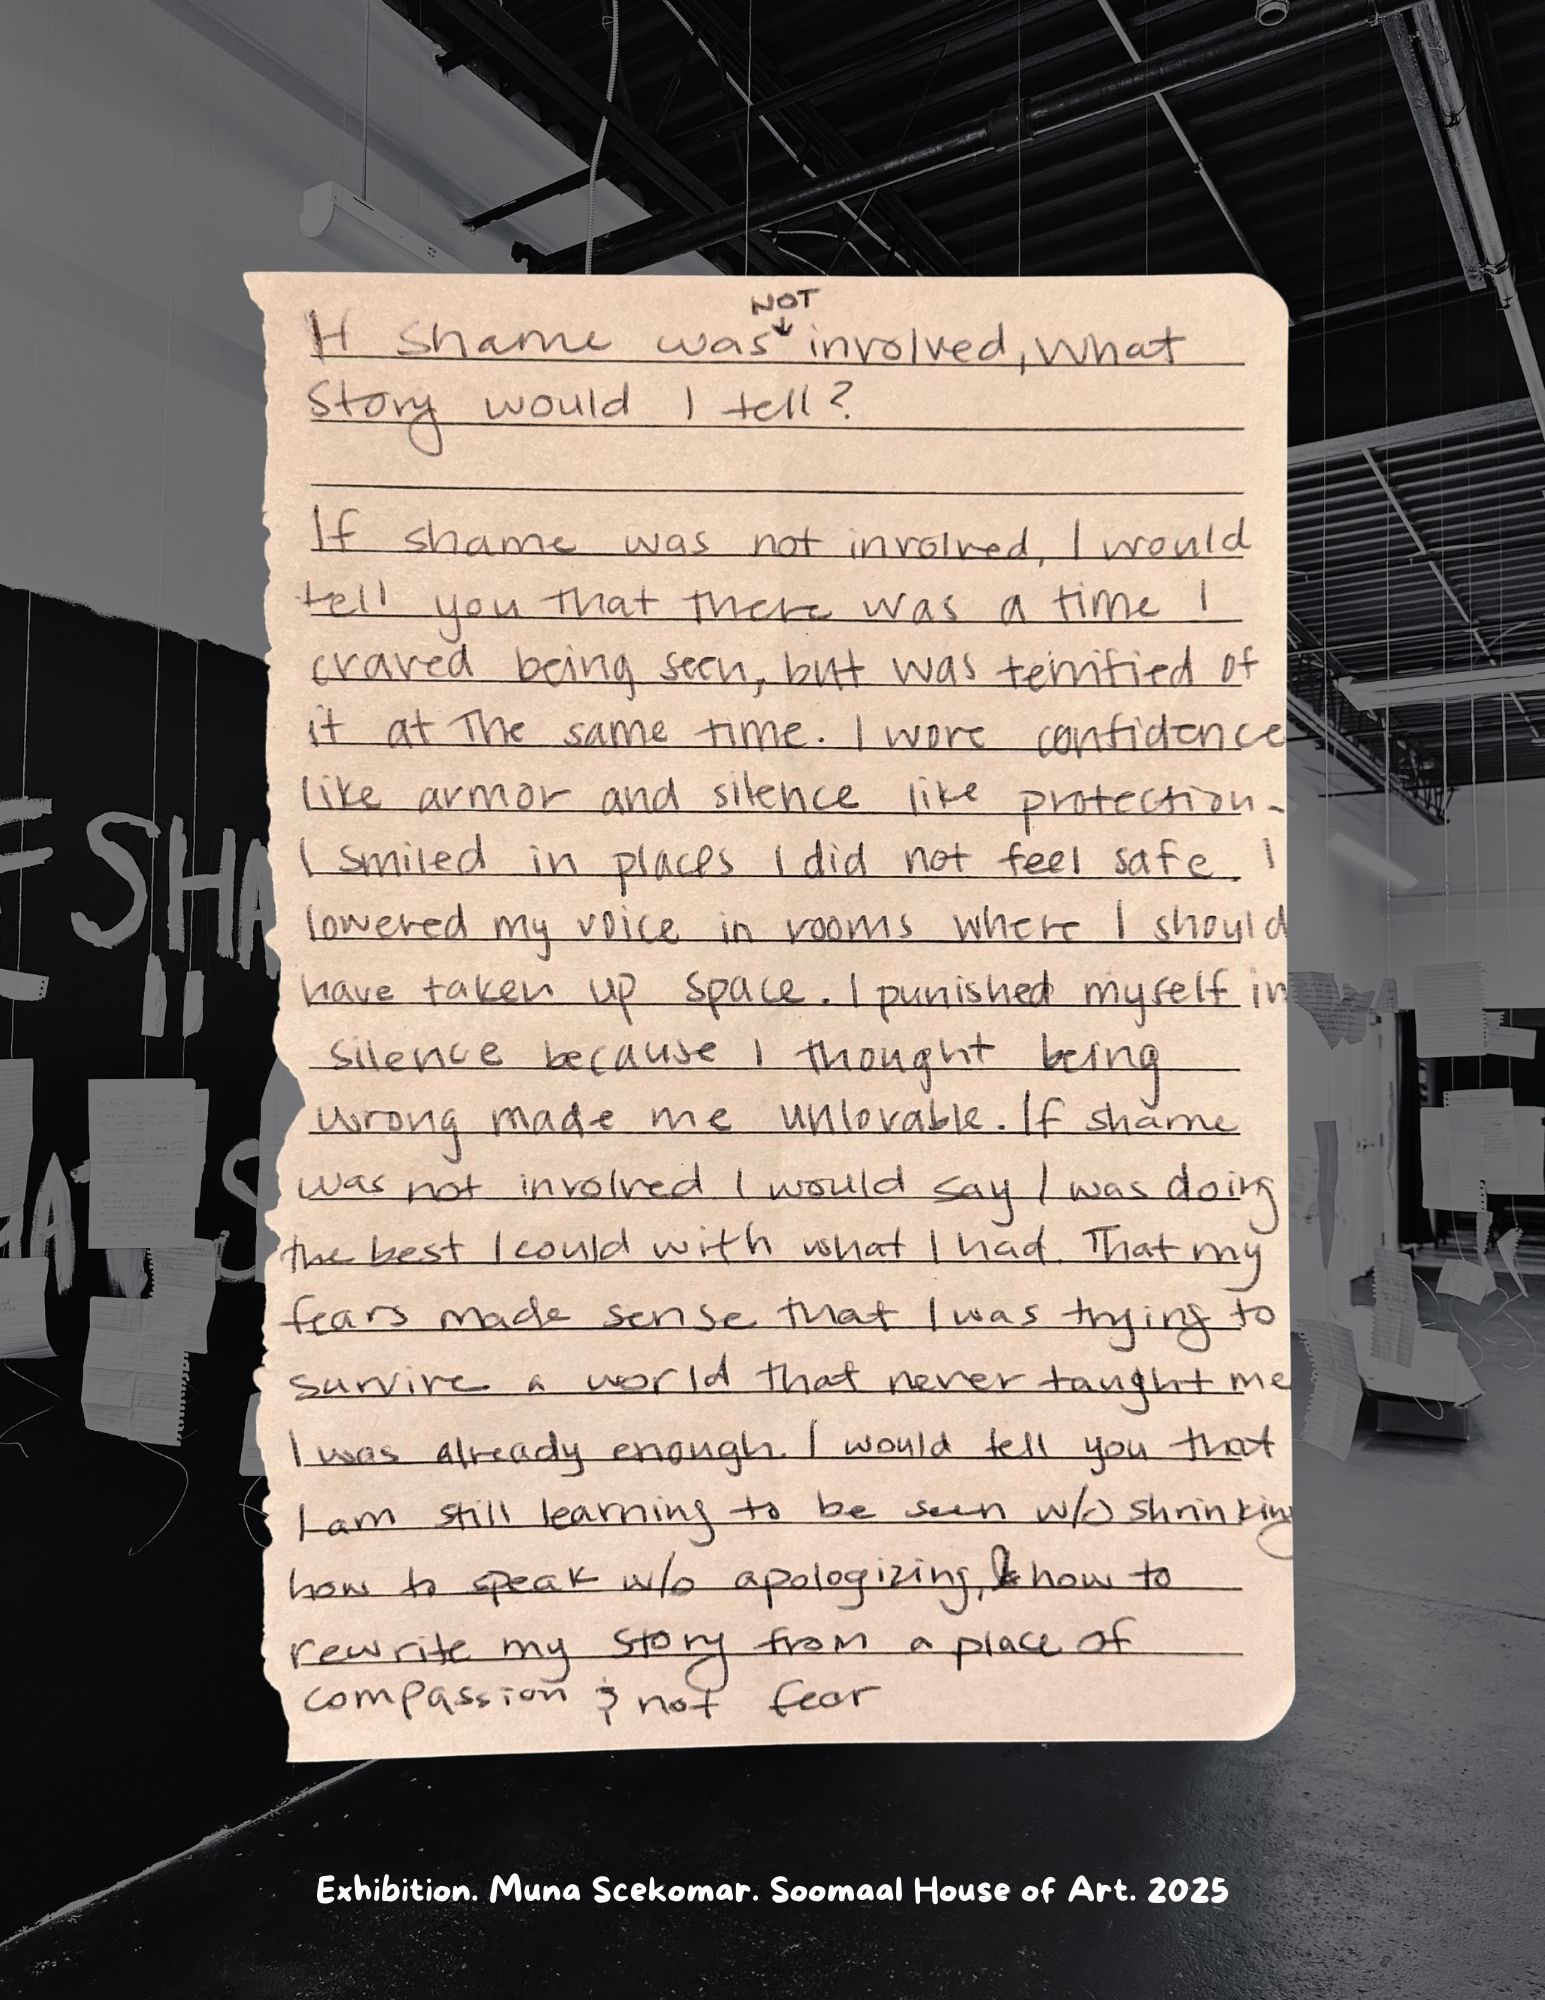 NOT
If shame was ↓ involved, what
story would I tell?
If shame was not involved, I would
tell you that there was a time I
craved being seen, but was terrified of
it at the same time. I wore confidence
like armor and silence like protection.
I smiled in places I did not feel safe. I
lowered my voice in rooms where I should
have taken up space. I punished myself in
silence because I thought being
wrong made me unlovable. If shame
was not involved I would say I was doing
the best I could with what I had. That my
fears made sense that I was trying to
survive a world that never taught me
I was already enough. I would tell you that
I am still learning to be seen w/o shrinking
how to speak w/o apologizing, & how to
rewrite my story from a place of
compassion & not fear
F SHA
Exhibition. Muna Scekomar. Soomaal House of Art. 2025